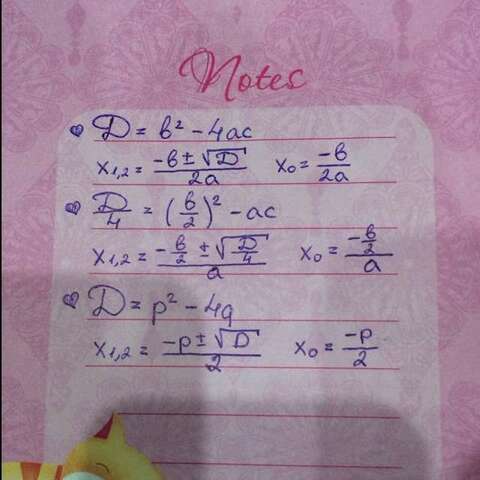 Notes
D = b² - 4ac
x₁,₂ = (-b ± √D)/2a   x₀ = -b/2a
D/4 = (b/2)² - ac
x₁,₂ = (-b/2 ± √(D/4))/a   x₀ = (-b/2)/a
D = p² - 4q
x₁,₂ = (-p ± √D)/2   x₀ = -p/2